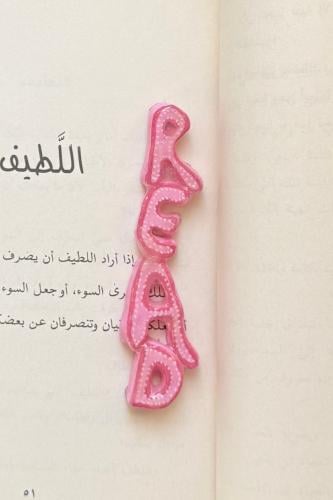 READ
اللَّطيف
إذا أراد اللطيف أن يصرف
السوء، أو جعل السوء
وتنصرفان عن
٥١